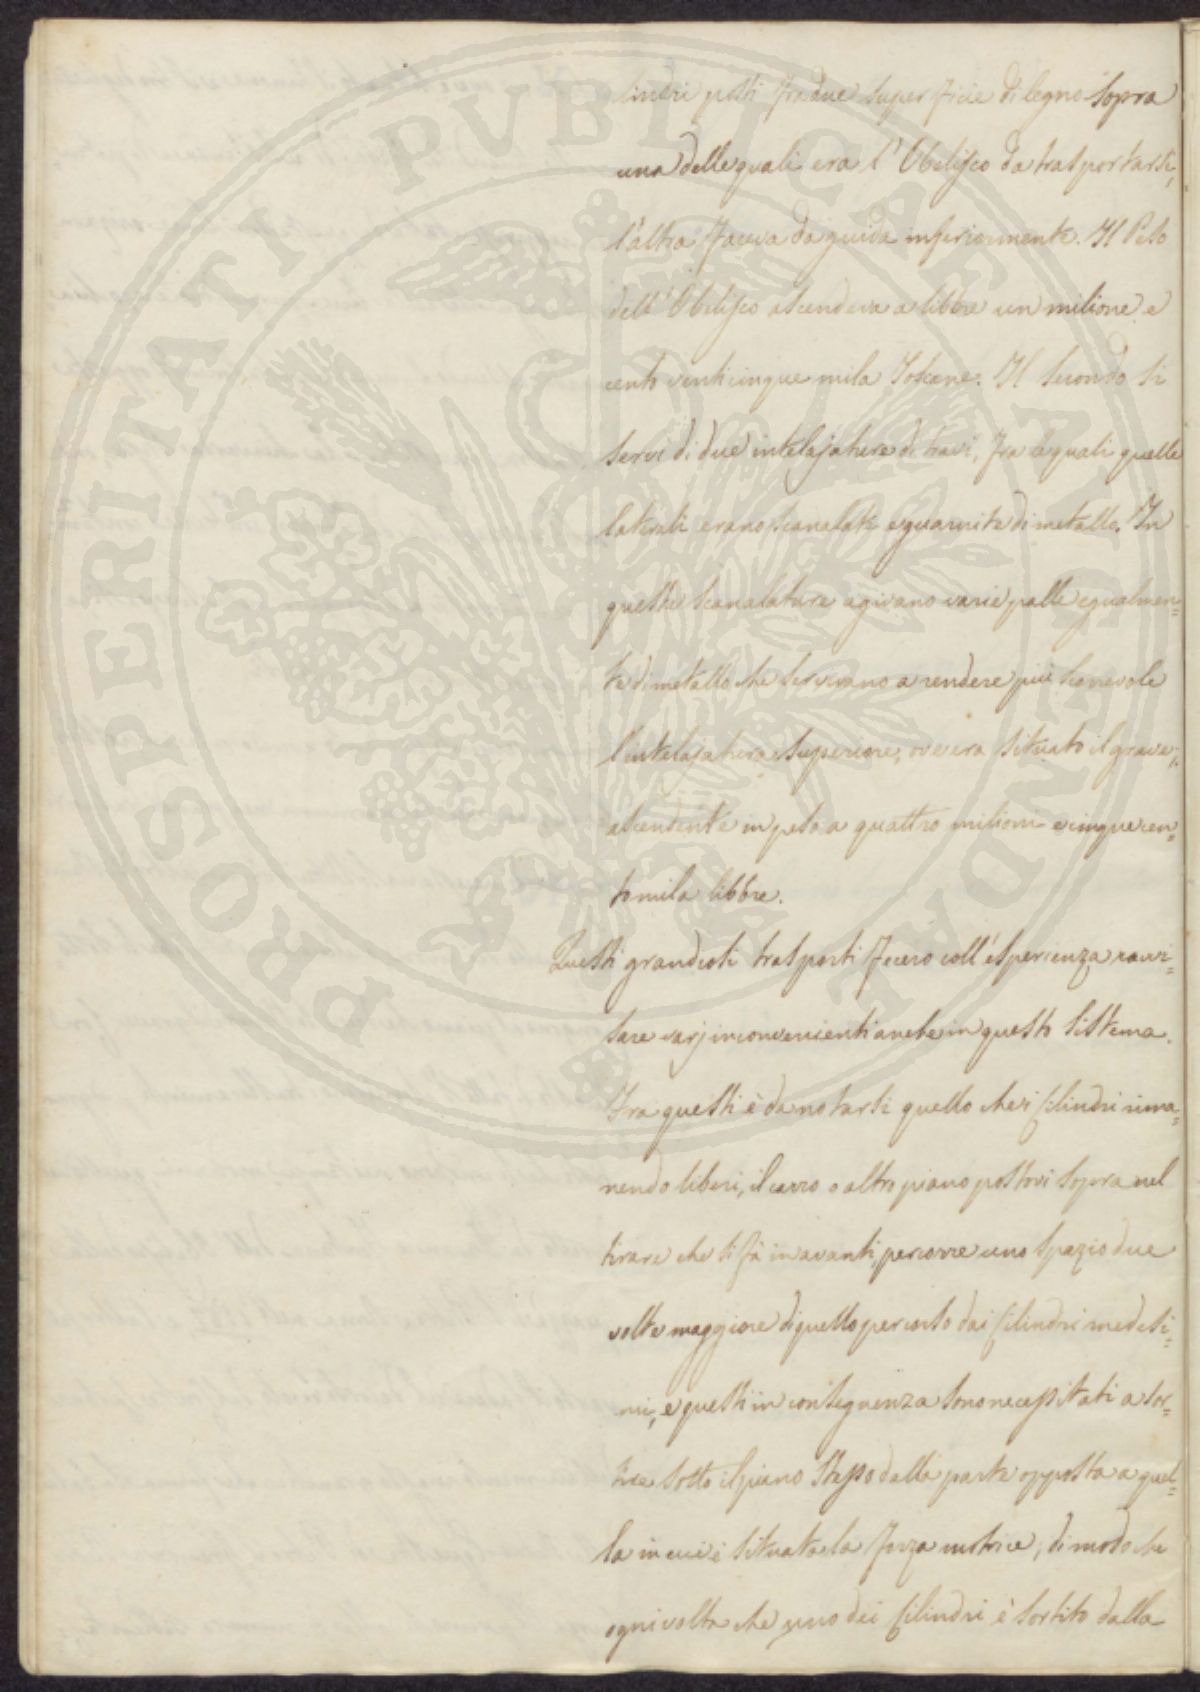 lindri posti fra due superficie di legno sopra
una delle quali era l'Obelisco da trasportarsi,
l'altra faceva da guida inferiormente. Il Peso
dell'Obelisco ascendeva a libbre un milione e
cento venticinque mila Toscane. Il secondo si
servì di due intelajature di travi, fra le quali quelle
laterali erano scanalate e guarnite di metallo. In
queste scanalature agivano varie palle egualmen=
te di metallo che servivano a rendere più scorrevole
l'intelajatura superiore, ove era situato il grave,
ascendente in peso a quattro milioni e cinquecen=
tomila libbre.
Questi grandiosi trasporti fecero coll'esperienza ravvi=
sare varj inconvenienti anche in questo sistema.
Fra questi è da notarsi quello che i Cilindri rima=
nendo liberi, il carro o altro piano postovi sopra nel
tirare che si fà in avanti, percorre uno spazio due
volte maggiore di quello percorso dai Cilindri medesi=
mi, e questi in conseguenza sono necessitati a sor=
tire sotto il piano stesso dalla parte opposta a quel=
la in cui è situata la forza motrice, di modo che
ogni volta che uno dei Cilindri è sortito dalla
PROSPERITATI PUBLICAE AUGENDAE